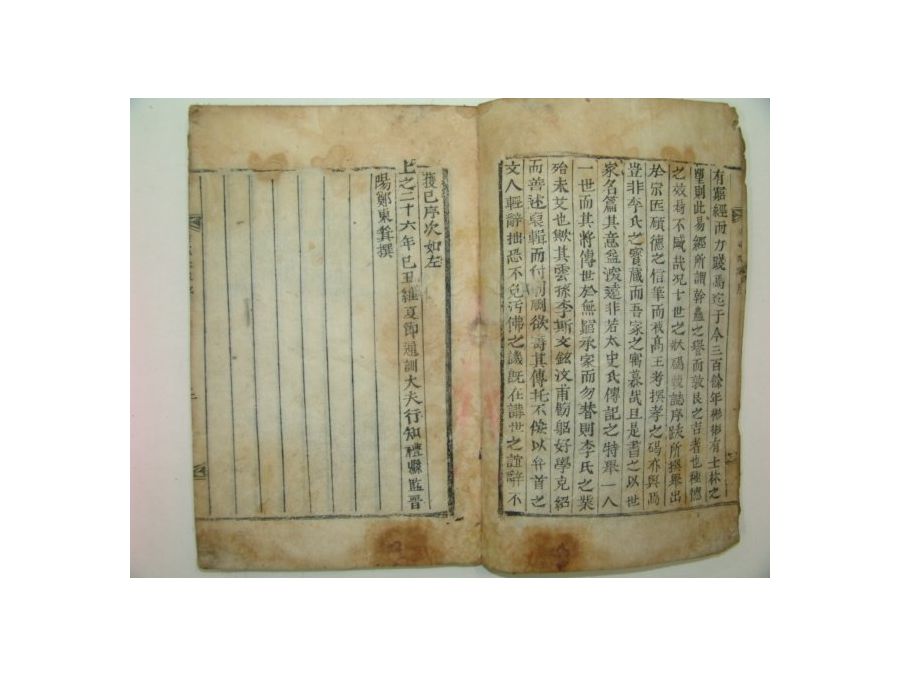 有窮經而力踐焉迄于今三百餘年彬彬有士林之
則此易經所謂幹蠱之譽而敦艮之吉者也種德
之效曷不盛哉況十世之狀碣竁誌序跋所撰舉出
於宗匠碩德之信筆而我高王考撰孝之碣亦與焉
豈非李氏之寶藏而吾家之寓慕哉且是書之以世
家名篇其意益深遠非若太史氏傳記之特擧一人
一世而其將傳世於無窮承家而勿替則李氏之業
殆未艾也歟其雲孫李斯文鉉汶甫劬躬好學克紹
而善述裒輯而付剞劂欲壽其傳托不佞以弁首之
文人輕辭拙恐不免汚佛之譏旣在講世之誼辭不
獲已序次如左
上之二十六年己丑維夏節通訓大夫行知禮縣監晉
陽鄭東箕撰